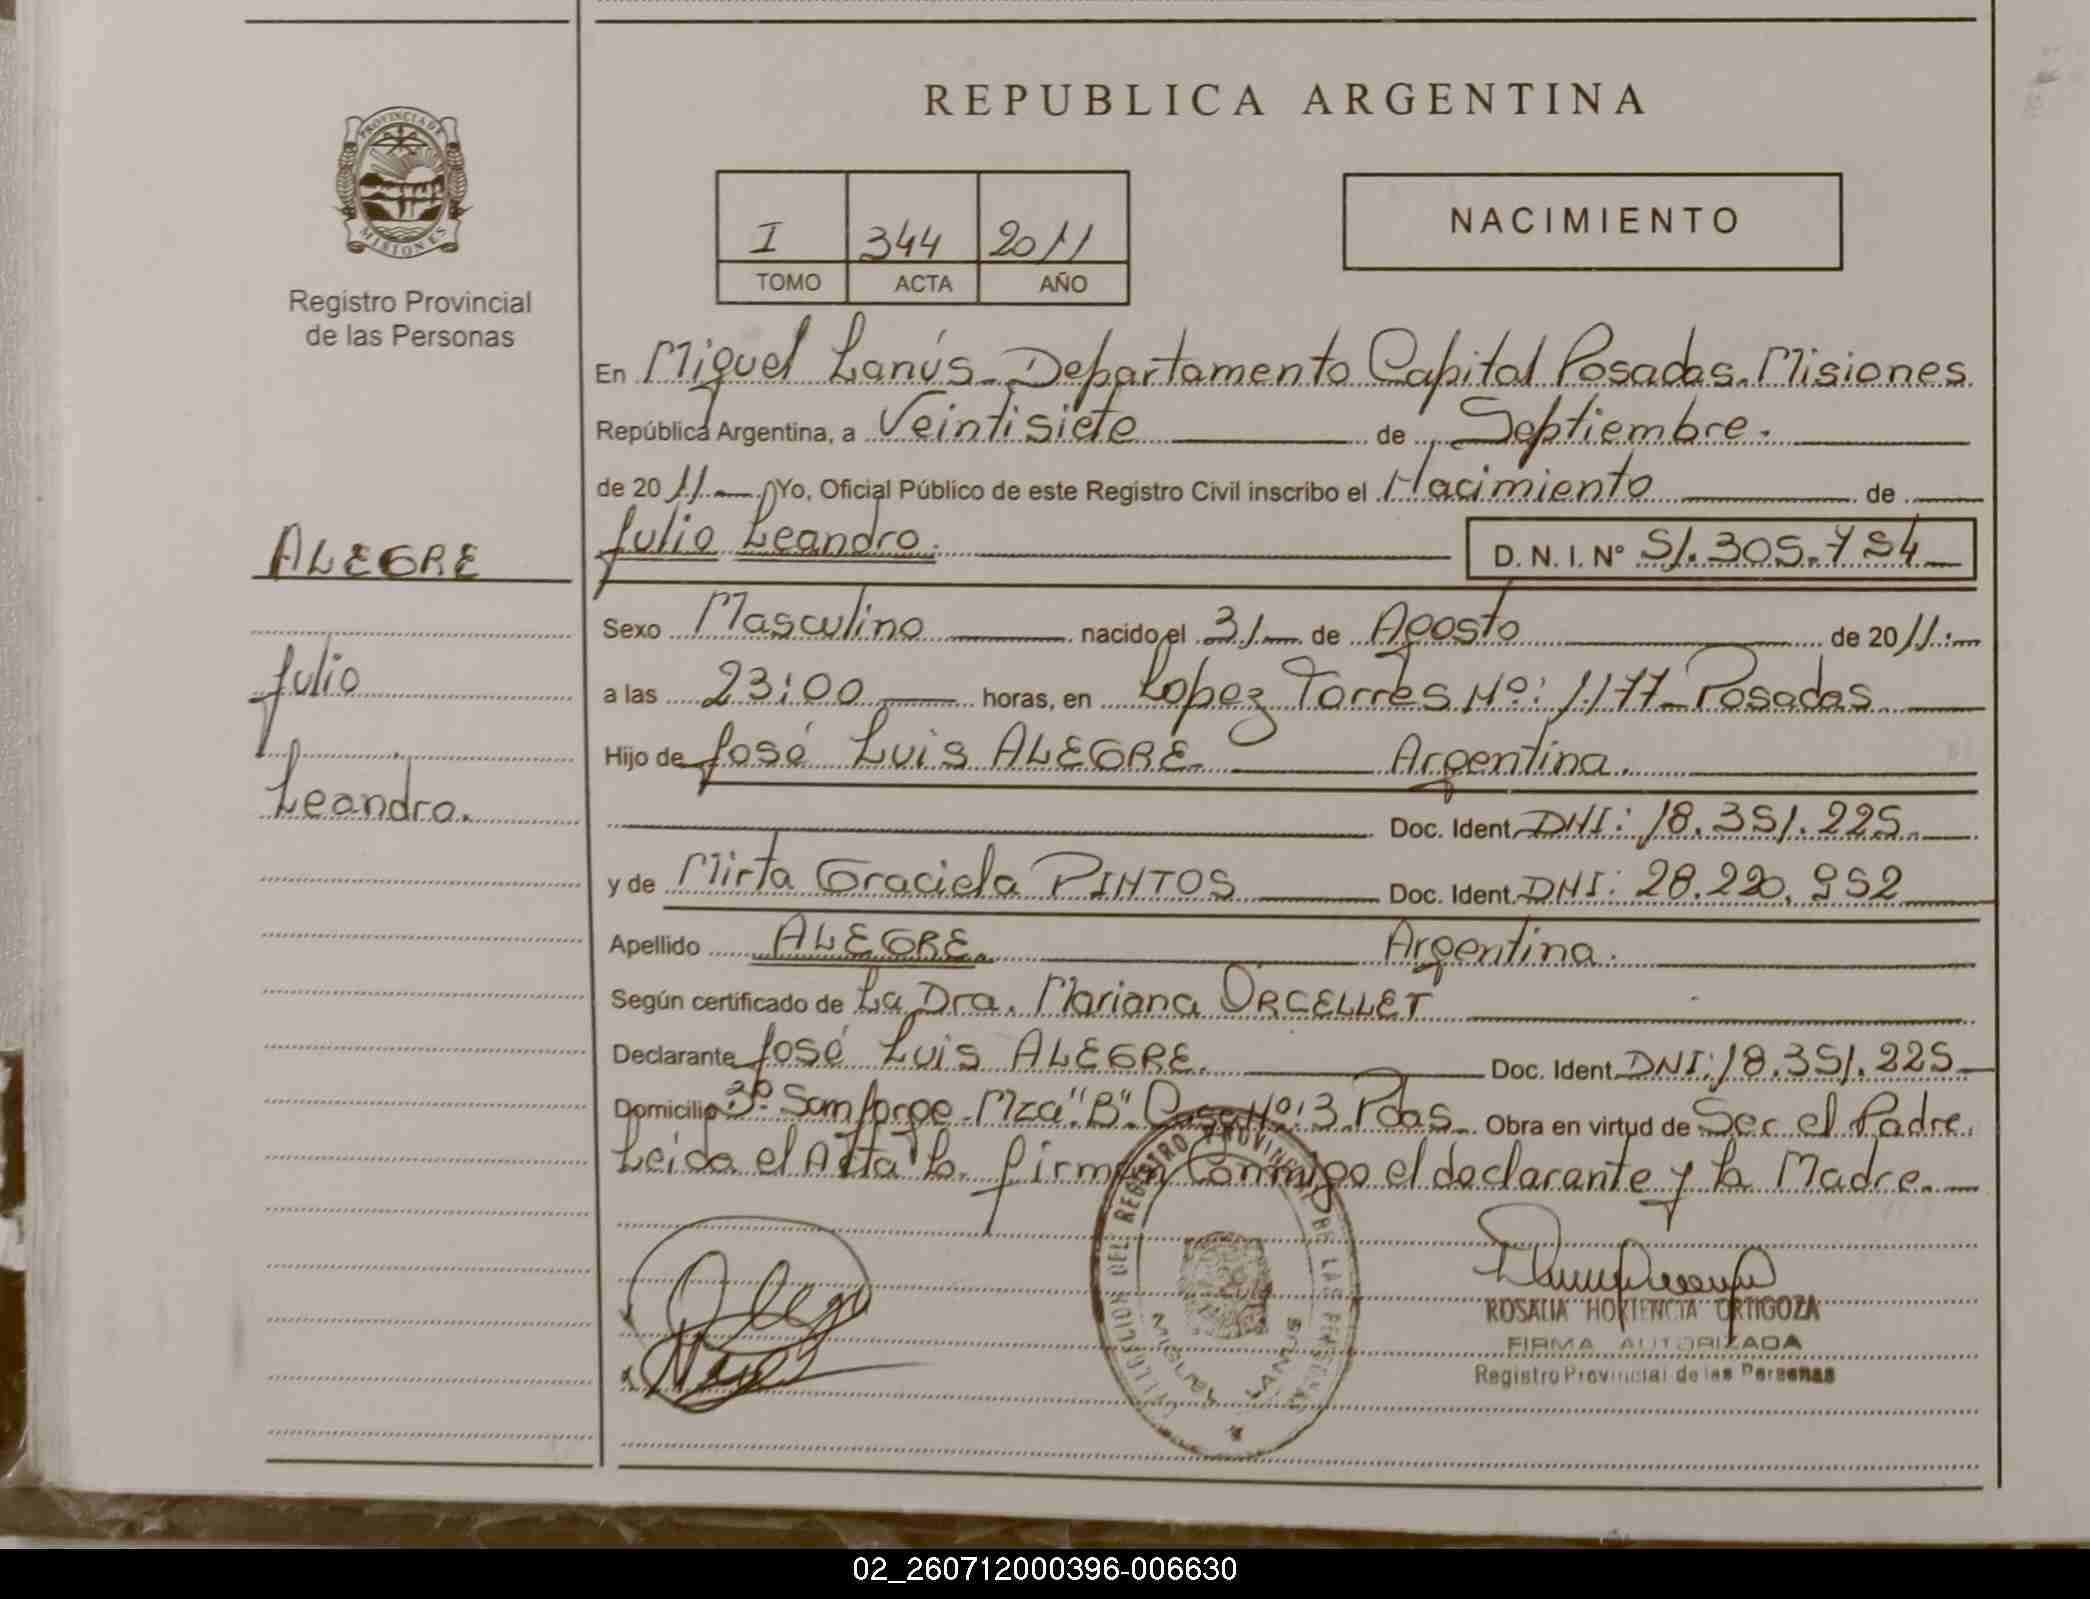 REPUBLICA ARGENTINA
PROVINCIA DE
MISIONES
Registro Provincial
de las Personas
I 344 2011
TOMO ACTA AÑO
NACIMIENTO
En Miguel Lanús - Departamento Capital Posadas. Misiones
República Argentina, a Veintisiete de Septiembre.
de 2011 Yo, Oficial Público de este Registro Civil inscribo el Nacimiento de
Julio Leandro. D. N. I. Nº 51.305.754
ALEGRE
Julio
Leandro.
Sexo Masculino nacido el 31 de Agosto de 2011
a las 23:00 horas, en Lopez Torres Nº: 1177 - Posadas
Hijo de José Luis ALEGRE. Argentina.
Doc. Ident. DNI: 18.351.225
y de Mirta Graciela PINTOS Doc. Ident. DNI: 28.220.952
Apellido ALEGRE. Argentina.
Según certificado de La Dra. Mariana ORCELLET
Declarante José Luis ALEGRE. Doc. Ident. DNI: 18.351.225
Domicilio Bº. San Jorge - Mza "B". Casa Nº: 3. Pdas. Obra en virtud de Ser el Padre.
Leída el Acta la firman Conmigo el declarante y la Madre.
DELEGACION DEL REGISTRO PROVINCIAL DE LAS PERSONAS
MIGUEL LANUS
ROSALIA HORTENCIA ORTIGOZA
FIRMA AUTORIZADA
Registro Provincial de las Personas
02_260712000396-006630